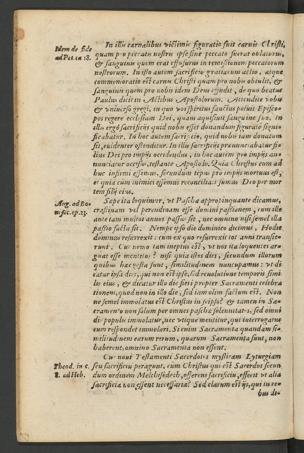 In illis carnalibus victimis figuratio fuit carnis Christi,
Idem de fide
ad Pet. ca 18.
quam pro peccatis nostris ipse sine peccato fuerat oblaturus,
& sanguinis quem erat effusurus in remissionem peccatorum
nostrorum. In isto autem sacrificio gratiarum actio, atque
commemoratio est carnis Christi quam pro nobis obtulit, &
sanguinis quem pro nobis idem Deus effudit, de quo beatus
Paulus dicit in Actibus Apostolorum. Attendite vobis
& universo gregi, in quo vos spiritus sanctus posuit Episco-
pos regere ecclesiam Dei, quam aquisivit sanguine suo. In
illis ergo sacrificiis quid nobis esset donandum figurate signi-
ficabatur. In hoc autem sacrificio, quid nobis iam donatum
sit, evidenter ostenditur. In illis sacrificiis prænunciabatur fi-
lius Dei pro impiis occidendus, in hoc autem pro impiis an-
nunciatur occisus, testante Apostolo. Quia Christus cum ad
huc infirmi essemus, secundum tempus pro impiis mortuus est,
& quia cum inimici essemus reconciliati sumus Deo per mor
tem filii eius.
Aug. ad Bo-
Sæpe ita loquimur, ut Pascha appropinquante dicamus,
crastinam vel perendinam esse domini passionem, cum ille
ante tam multos annos passus sit, nec omnino nisi semel illa
passio facta sit. Nempe ipso die dominico dicimus, Hodie
dominus resurrexit: cum ex quo resurrexit tot anni transie-
runt. Cur nemo tam ineptus est, ut nos ita loquentes ar-
guat esse mentitos? nisi quia istos dies, secundum illorum
quibus hæc gesta sunt, similitudinem nuncupamus: ut di
catur ipse dies, qui non est ipse, sed revolutione temporis simi
lis eius, & dicatur illo die fieri propter Sacramenti celebra
tionem, quod non in illo die, sed iam olim factum est. Non
ne semel immolatus est Christus in seipso? & tamen in Sa-
cramento non solum per omnes paschæ solennitates, sed omni
die populis immolatur, nec utique mentitur, qui interrogatus
eum respondet immolari. Si enim Sacramenta quandam si-
militudinem earum rerum, quarum Sacramenta sunt, non
haberent, omnino Sacramenta non essent.
Cur novi Testamenti Sacerdotes mysticam Lyturgiam
Theod. in c.
8. ad Heb.
seu sacrificium peragunt, cum Christus qui est Sacerdos secun
dum ordinem Melchisedech, offerens sacrificium, effecit ut alia
sacrificia non essent necessaria? Sed clarum est iis, qui in re-
bus di-